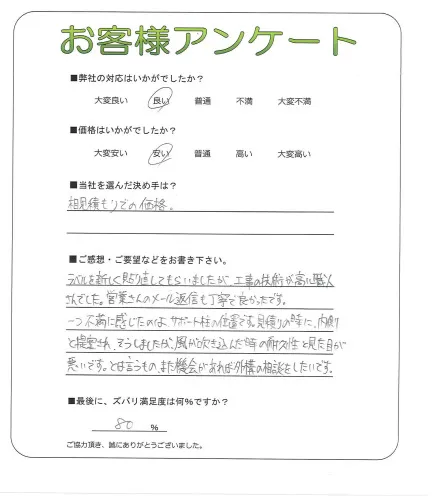 お客様アンケート
■弊社の対応はいかがでしたか?
大変良い 良い 普通 不満 大変不満
■価格はいかがでしたか?
大変安い 安い 普通 高い 大変高い
■当社を選んだ決め手は?
相見積もりでの価格。
■ご感想・ご要望などをお書き下さい。
を新しく貼り直してもらいましたが、工事の技術が高い職人
さんでした。営業さんのメール返信も丁寧で良かったです。
一つ不満に感じたのは、サポート柱の位置です。見積りの時に、内側
と提案され、そうしましたが、風が吹き込んだ時の耐久性と見た目が
悪いです。とは言うもの、また機会があれば外構の相談をしたいです。
■最後に、ズバリ満足度は何%ですか?
80 %
ご協力頂き、誠にありがとうございました。